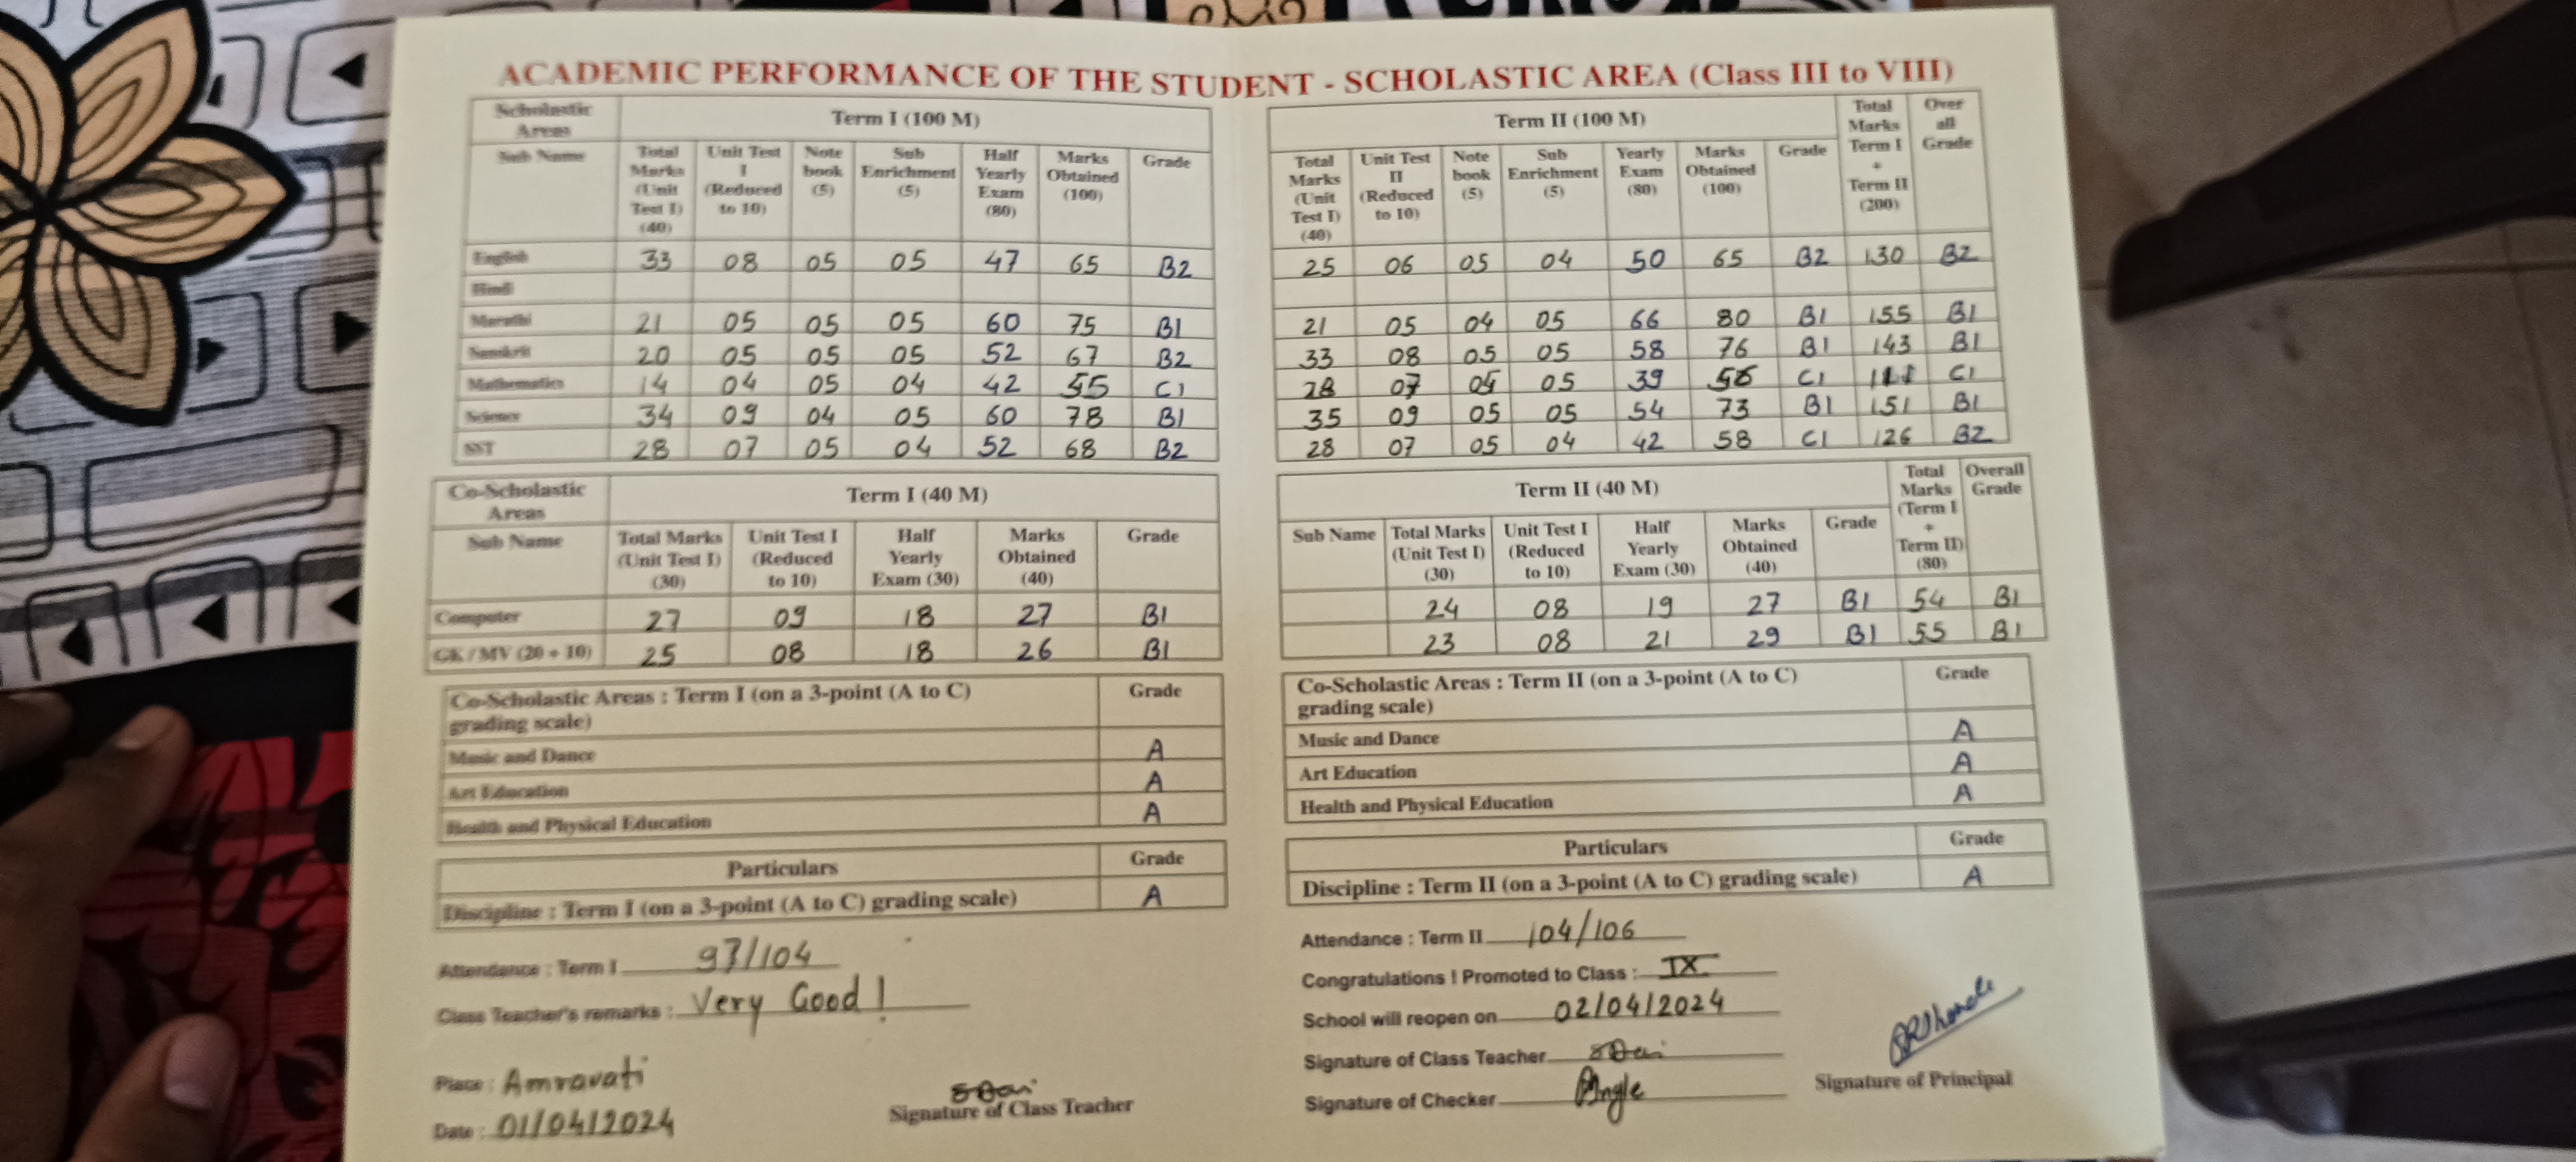 ACADEMIC PERFORMANCE OF THE STUDENT - SCHOLASTIC AREA (Class III to VIII)
Scholastic Areas Term I (100 M)
Sub Name Total Marks (Unit Test I) (40) Unit Test I (Reduced to 10) Note book (5) Sub Enrichment (5) Half Yearly Exam (80) Marks Obtained (100) Grade
English 33 08 05 05 47 65 B2
Hindi
Marathi 21 05 05 05 60 75 B1
Sanskrit 20 05 05 05 52 67 B2
Mathematics 14 04 05 04 42 55 C1
Science 34 09 04 05 60 78 B1
SST 28 07 05 04 52 68 B2
Co-Scholastic Areas Term I (40 M)
Sub Name Total Marks (Unit Test I) (30) Unit Test I (Reduced to 10) Half Yearly Exam (30) Marks Obtained (40) Grade
Computer 27 09 18 27 B1
GK / MV (20 + 10) 25 08 18 26 B1
Co-Scholastic Areas : Term I (on a 3-point (A to C) Grade
grading scale)
Music and Dance A
Art Education A
Health and Physical Education A
Particulars Grade
Discipline : Term I (on a 3-point (A to C) grading scale) A
Attendance : Term I 97/104
Class Teacher's remarks : Very Good !
Place : Amravati
Date : 01/04/2024
Signature of Class Teacher
Term II (100 M) Total Marks Term I + Term II (200) Over all Grade
Total Marks (Unit Test I) (40) Unit Test II (Reduced to 10) Note book (5) Sub Enrichment (5) Yearly Exam (80) Marks Obtained (100) Grade
25 06 05 04 50 65 B2 130 B2
21 05 04 05 66 80 B1 155 B1
33 08 05 05 58 76 B1 143 B1
28 07 05 39 C1 C1
35 09 05 05 54 73 B1 151 B1
28 07 05 04 42 58 C1 126 B2
Term II (40 M) Total Marks (Term I + Term II) (80) Overall Grade
Sub Name Total Marks (Unit Test I) (30) Unit Test I (Reduced to 10) Half Yearly Exam (30) Marks Obtained (40) Grade
24 08 19 27 B1 54 B1
23 08 21 29 B1 55 B1
Co-Scholastic Areas : Term II (on a 3-point (A to C) Grade
grading scale)
Music and Dance A
Art Education A
Health and Physical Education A
Particulars Grade
Discipline : Term II (on a 3-point (A to C) grading scale) A
Attendance : Term II 104/106
Congratulations ! Promoted to Class : IX
School will reopen on 02/04/2024
Signature of Class Teacher
Signature of Checker
Signature of Principal